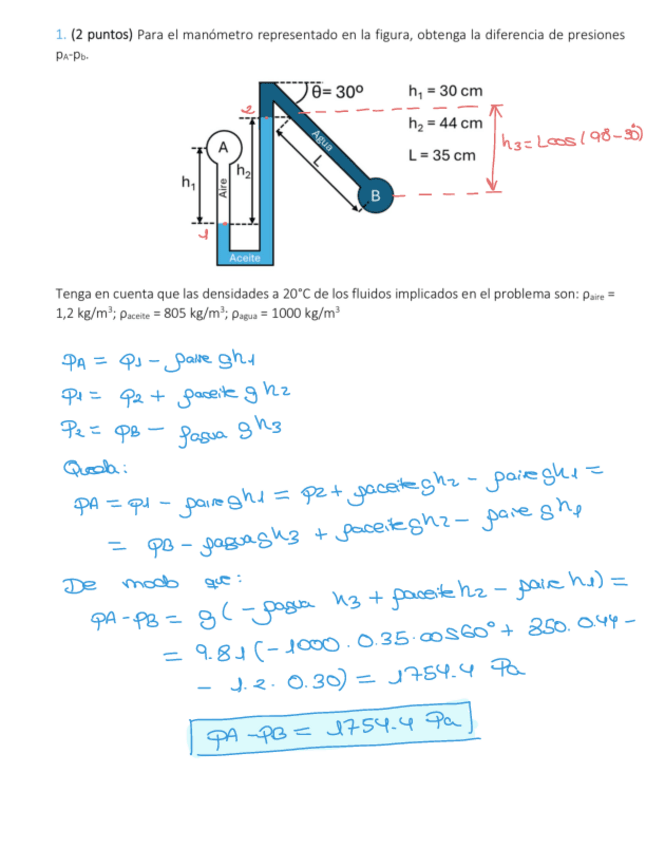 1. (2 puntos) Para el manómetro representado en la figura, obtenga la diferencia de presiones
pA-pb.
θ= 30º
h₁ = 30 cm
2
h₂ = 44 cm
h3 = L cos (90-30)
A
Agua
L = 35 cm
L
h₁
Aire
h₂
B
1
Aceite
Tenga en cuenta que las densidades a 20°C de los fluidos implicados en el problema son: ρaire =
1,2 kg/m³; ρaceite = 805 kg/m³; ρagua = 1000 kg/m³
PA = P1 - ρaire gh1
P1 = P2 + ρaceite g h2
P2 = PB - ρagua g h3
Queda:
PA = P1 - ρaire gh1 = P2 + ρaceite gh2 - ρaire gh1 =
= PB - ρagua gh3 + ρaceite gh2 - ρaire gh1
De modo que:
PA - PB = g(-ρagua h3 + ρaceite h2 - ρaire h1) =
= 9.81 (-1000 · 0.35 · cos60° + 850 · 0.44 -
- 1.2 · 0.30) = 1754.4 Pa
PA - PB = 1754.4 Pa